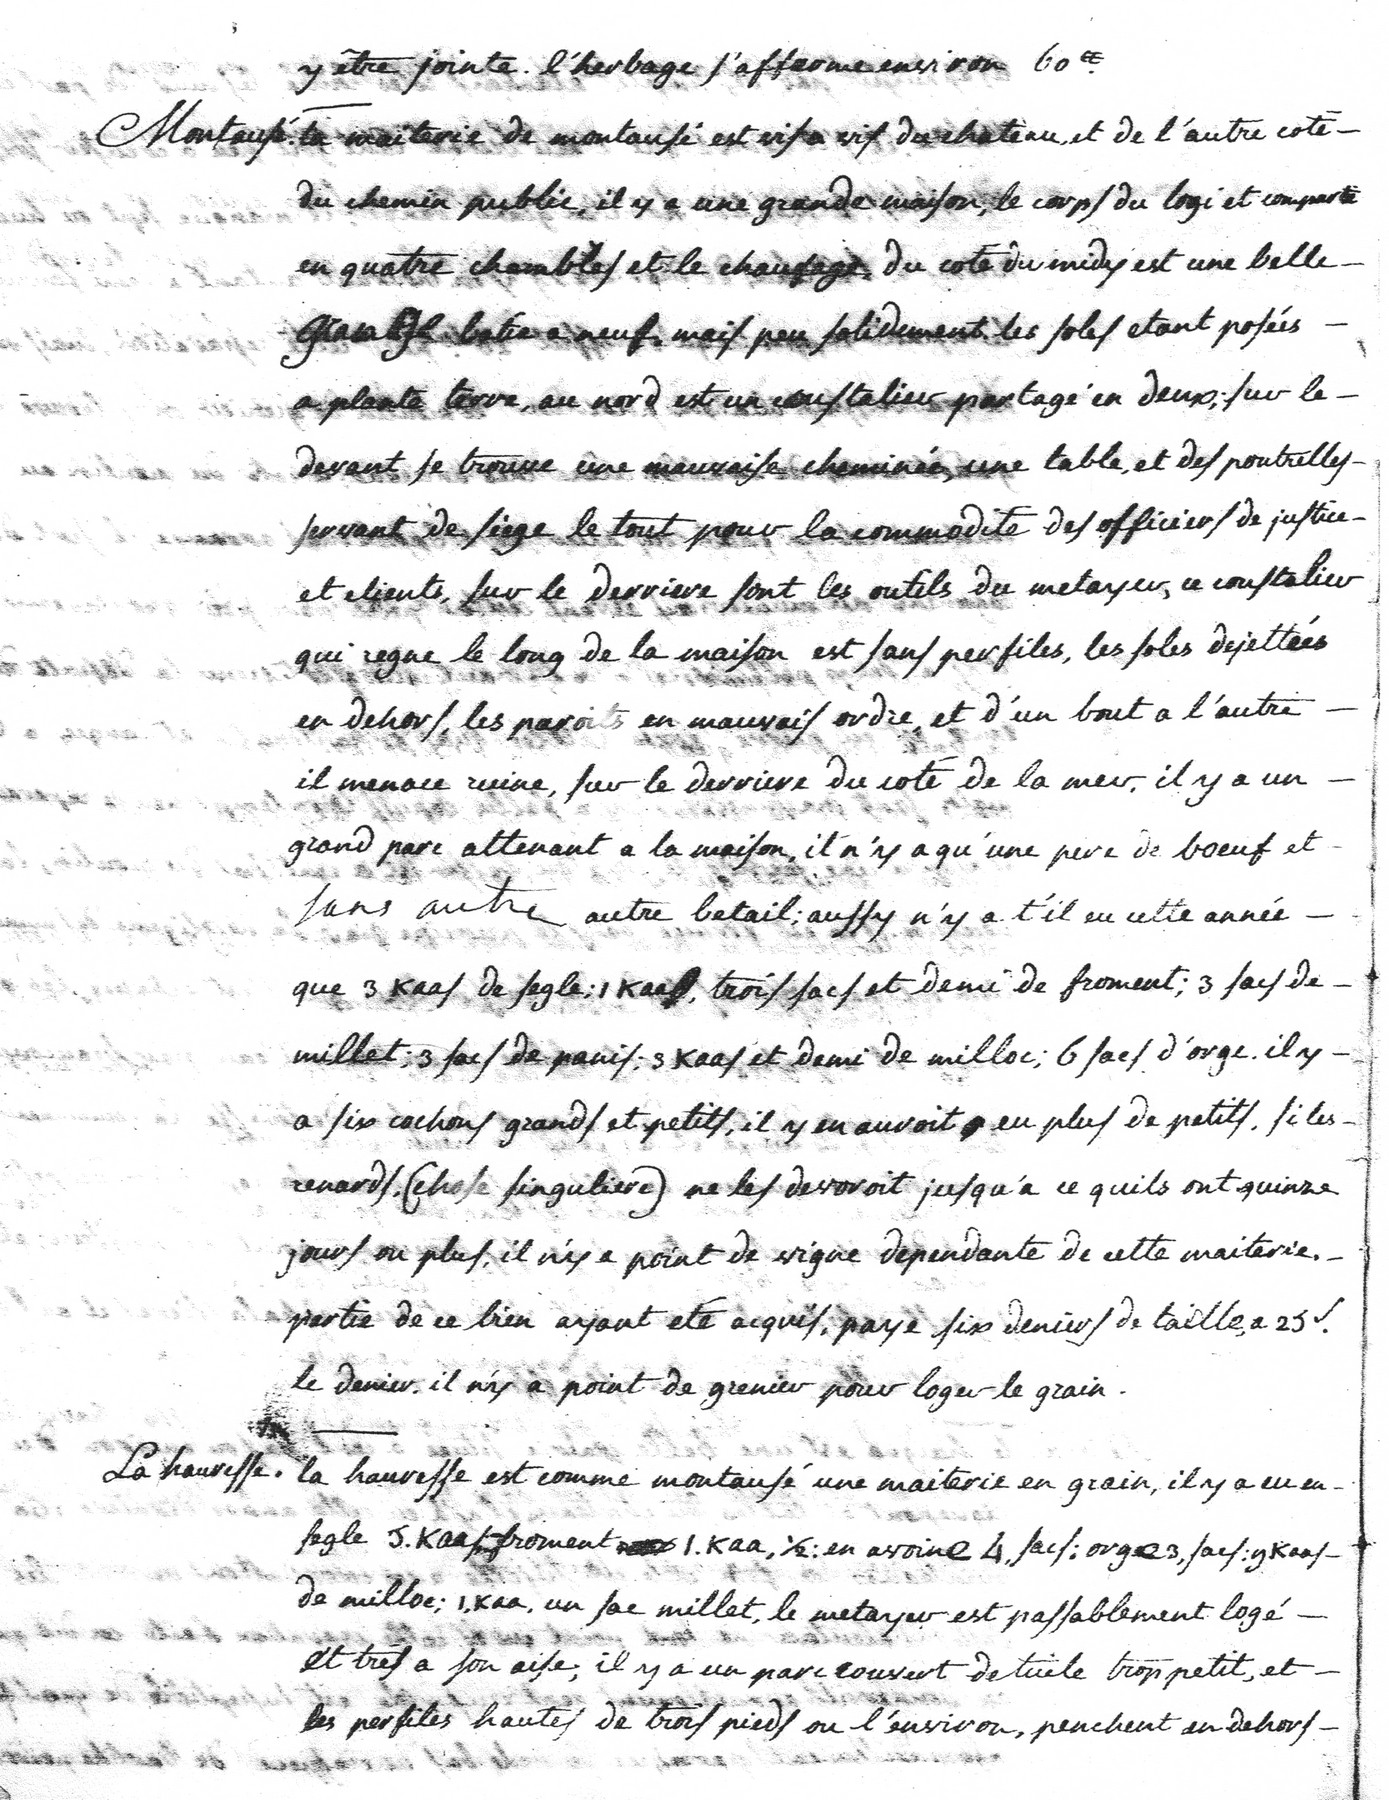 y être jointe. l'herbage s'afferme environ 60 ₶.
Montausé. la maiterie de montausé est vis a vis du chateau, et de l'autre coté
du chemin public, il y a une grande maison, le corps du logi et comparti
en quatre chambres et le chaufage, du coté du midy est une belle
Grange batie a neuf, mais peu solidement. les soles etant posées
a plante terre, au nord est un coustalier partagé en deux; sur le
devant se trouve une mauvaise cheminée, une table, et des poutrelles
servant de siege le tout pour la commodité des officiers de justice
et clients, sur le derriere sont les outils du metayer, ce coustalier
qui regne le long de la maison est sans perfiles, les soles dejettées
en dehors, les paroits en mauvais ordre, et d'un bout a l'autre
il menace ruine, sur le derriere du coté de la mer, il y a un
grand parc attenant a la maison, il n'y a qu'une pere de boeuf et
sans autre autre betail; aussy n'y a t'il eu cette année
que 3 Kaas de segle; 1 Kaas, trois sacs et demi de froment; 3 sacs de
millet; 3 sacs de panis; 3 Kaas et demi de milloc; 6 sacs d'orge. il y
a six cochons grands et petits, il y en auroit eu plus de petits, si les
renards, (chose singuliere) ne les devoroit jusqu'a ce quils ont quinze
jours ou plus, il n'y a point de vigne dependante de cette maiterie.
partie de ce bien ayant eté acquis, paye six deniers de taille, a 25 s.
le denier. il n'y a point de grenier pour loger le grain.
La hauresse. la hauresse est comme montausé une maiterie en grain, il y a eu en
segle 5. Kaas, froment 1. Kaa, ½: en avoine 4, sacs: orge 3, sacs: y Kaas
de milloc; 1, Kaa, un sac millet, le metayer est passablement logé
et trés a son aise, il y a un parc couvert de tuile trop petit, et
les perfiles hautes de trois pieds ou l'environ, penchent en dehors